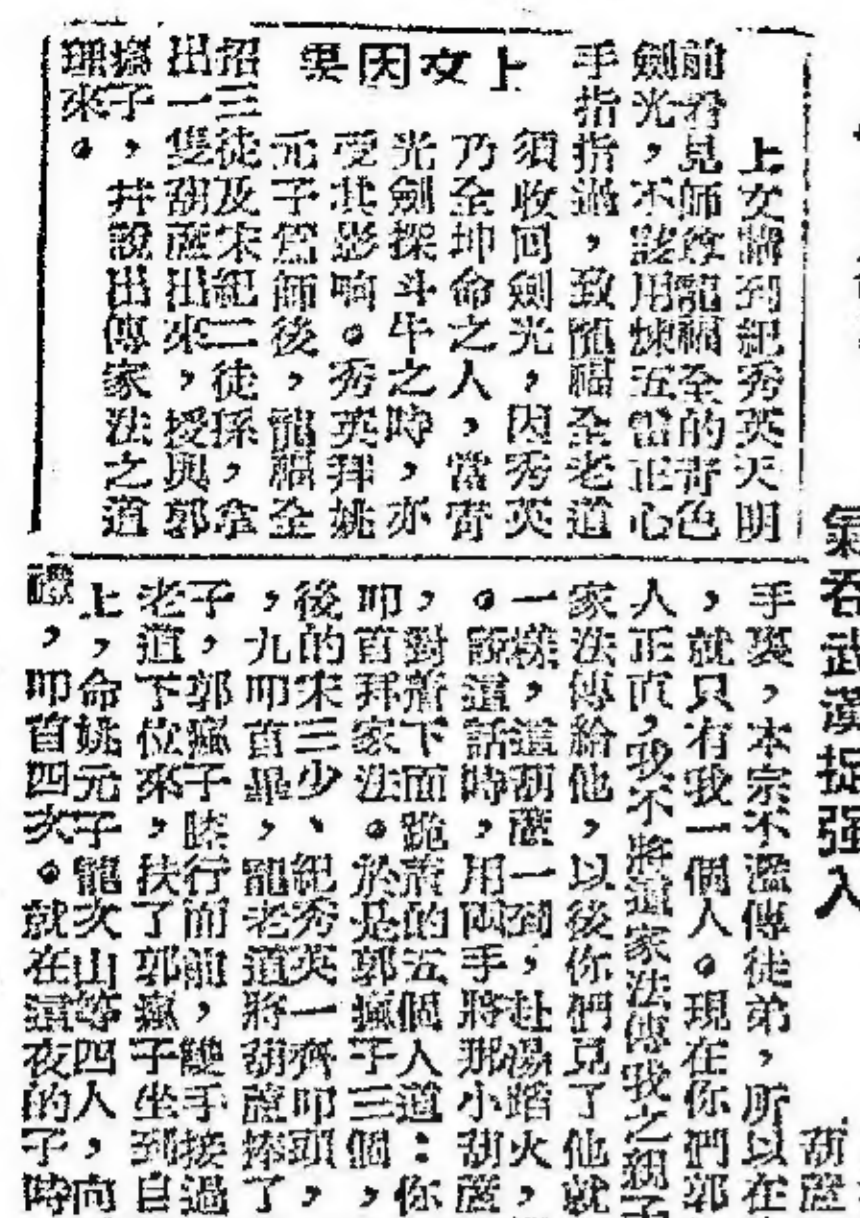 氣吞武漢捉强人
葫蘆
上文因果
上文講到紀秀英天明
前看見師尊龍福全的青色
劍光，不該用煉五雷正心
手指指過，致龍福全老道
須收回劍光，因秀英
乃全坤命之人，當青
光劍探斗牛之時，亦
受其影响。秀英拜姚
元子為師後，龍福全
招三徒及宋紀二徒孫，拿
出一隻葫蘆出來，授與郭
瘋子，并說出傳家法之道
理來。
手裏，本宗不濫傳徒弟，所以在
，就只有我一個人。現在你們郭
人正直，我不將這家法傳我之親子
家法傳給他，以後你們見了他就
一樣，這葫蘆一到，赴湯蹈火，
。說這話時，用兩手將那小葫蘆
，對着下面跪着的五個人道：你
叩首拜家法。於是郭瘋子三個，
後的宋三少、紀秀英一齊叩頭，
，九叩首畢，龍老道將葫蘆捧了
子，郭瘋子膝行而前，雙手接過
老道下位來，扶了郭瘋子坐到自
上，命姚元子龍次山等四人，向
禮，叩首四次。就在這夜的子時